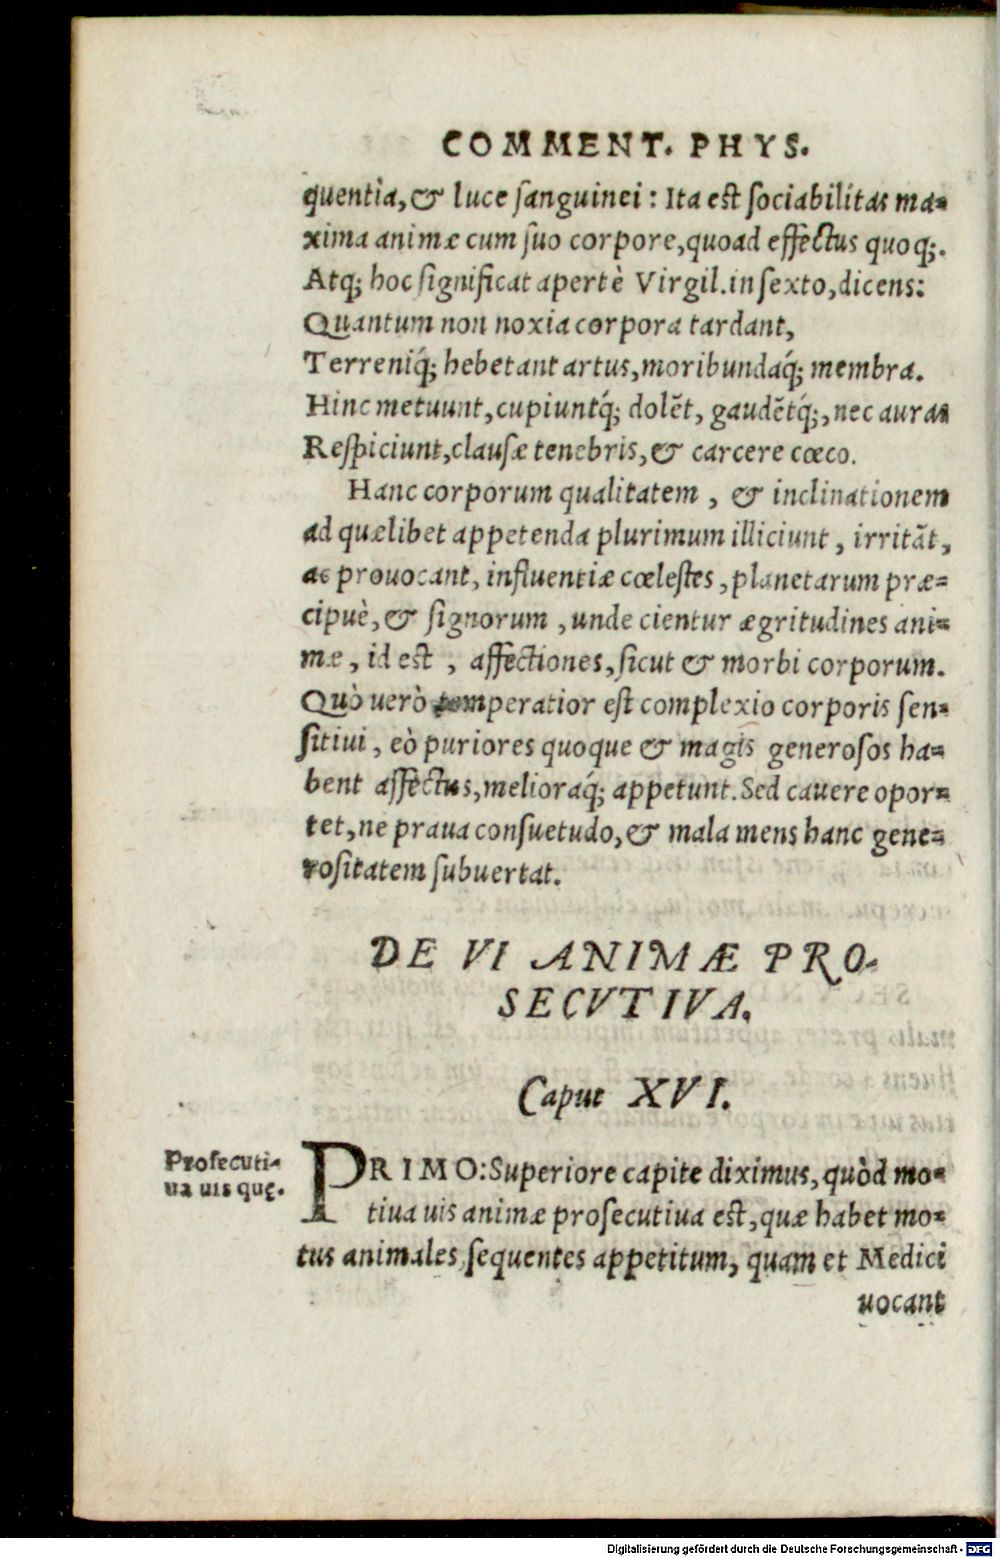 COMMENT. PHYS.
quentia, & luce sanguinei: Ita est sociabilitas ma-
xima animæ cum suo corpore, quoad effectus quoq;.
Atq; hoc significat apertè Virgil. in sexto, dicens:
Quantum non noxia corpora tardant,
Terreniq́; hebetant artus, moribundaq́; membra.
Hinc metuunt, cupiuntq́; dolẽt, gaudẽtq́;, nec auras
Respiciunt, clausæ tenebris, & carcere cœco.
Hanc corporum qualitatem, & inclinationem
ad quælibet appetenda plurimum illiciunt, irritãt,
ac prouocant, influentiæ cœlestes, planetarum præ-
cipuè, & signorum, unde cientur ægritudines ani-
mæ, id est, affectiones, sicut & morbi corporum.
Quò uerò temperatior est complexio corporis sen-
sitiui, eò puriores quoque & magis generosos ha-
bent affectus, melioraq́; appetunt. Sed cauere opor-
tet, ne praua consuetudo, & mala mens hanc gene-
rositatem subuertat.
DE VI ANIMÆ PRO-
SECVTIVA.
Caput XVI.
Prosecuti-
ua uis quę.
PRIMO: Superiore capite diximus, quòd mo-
tiua uis animæ prosecutiua est, quæ habet mo-
tus animales sequentes appetitum, quam et Medici
uocant
Digitalisierung gefördert durch die Deutsche Forschungsgemeinschaft - DFG